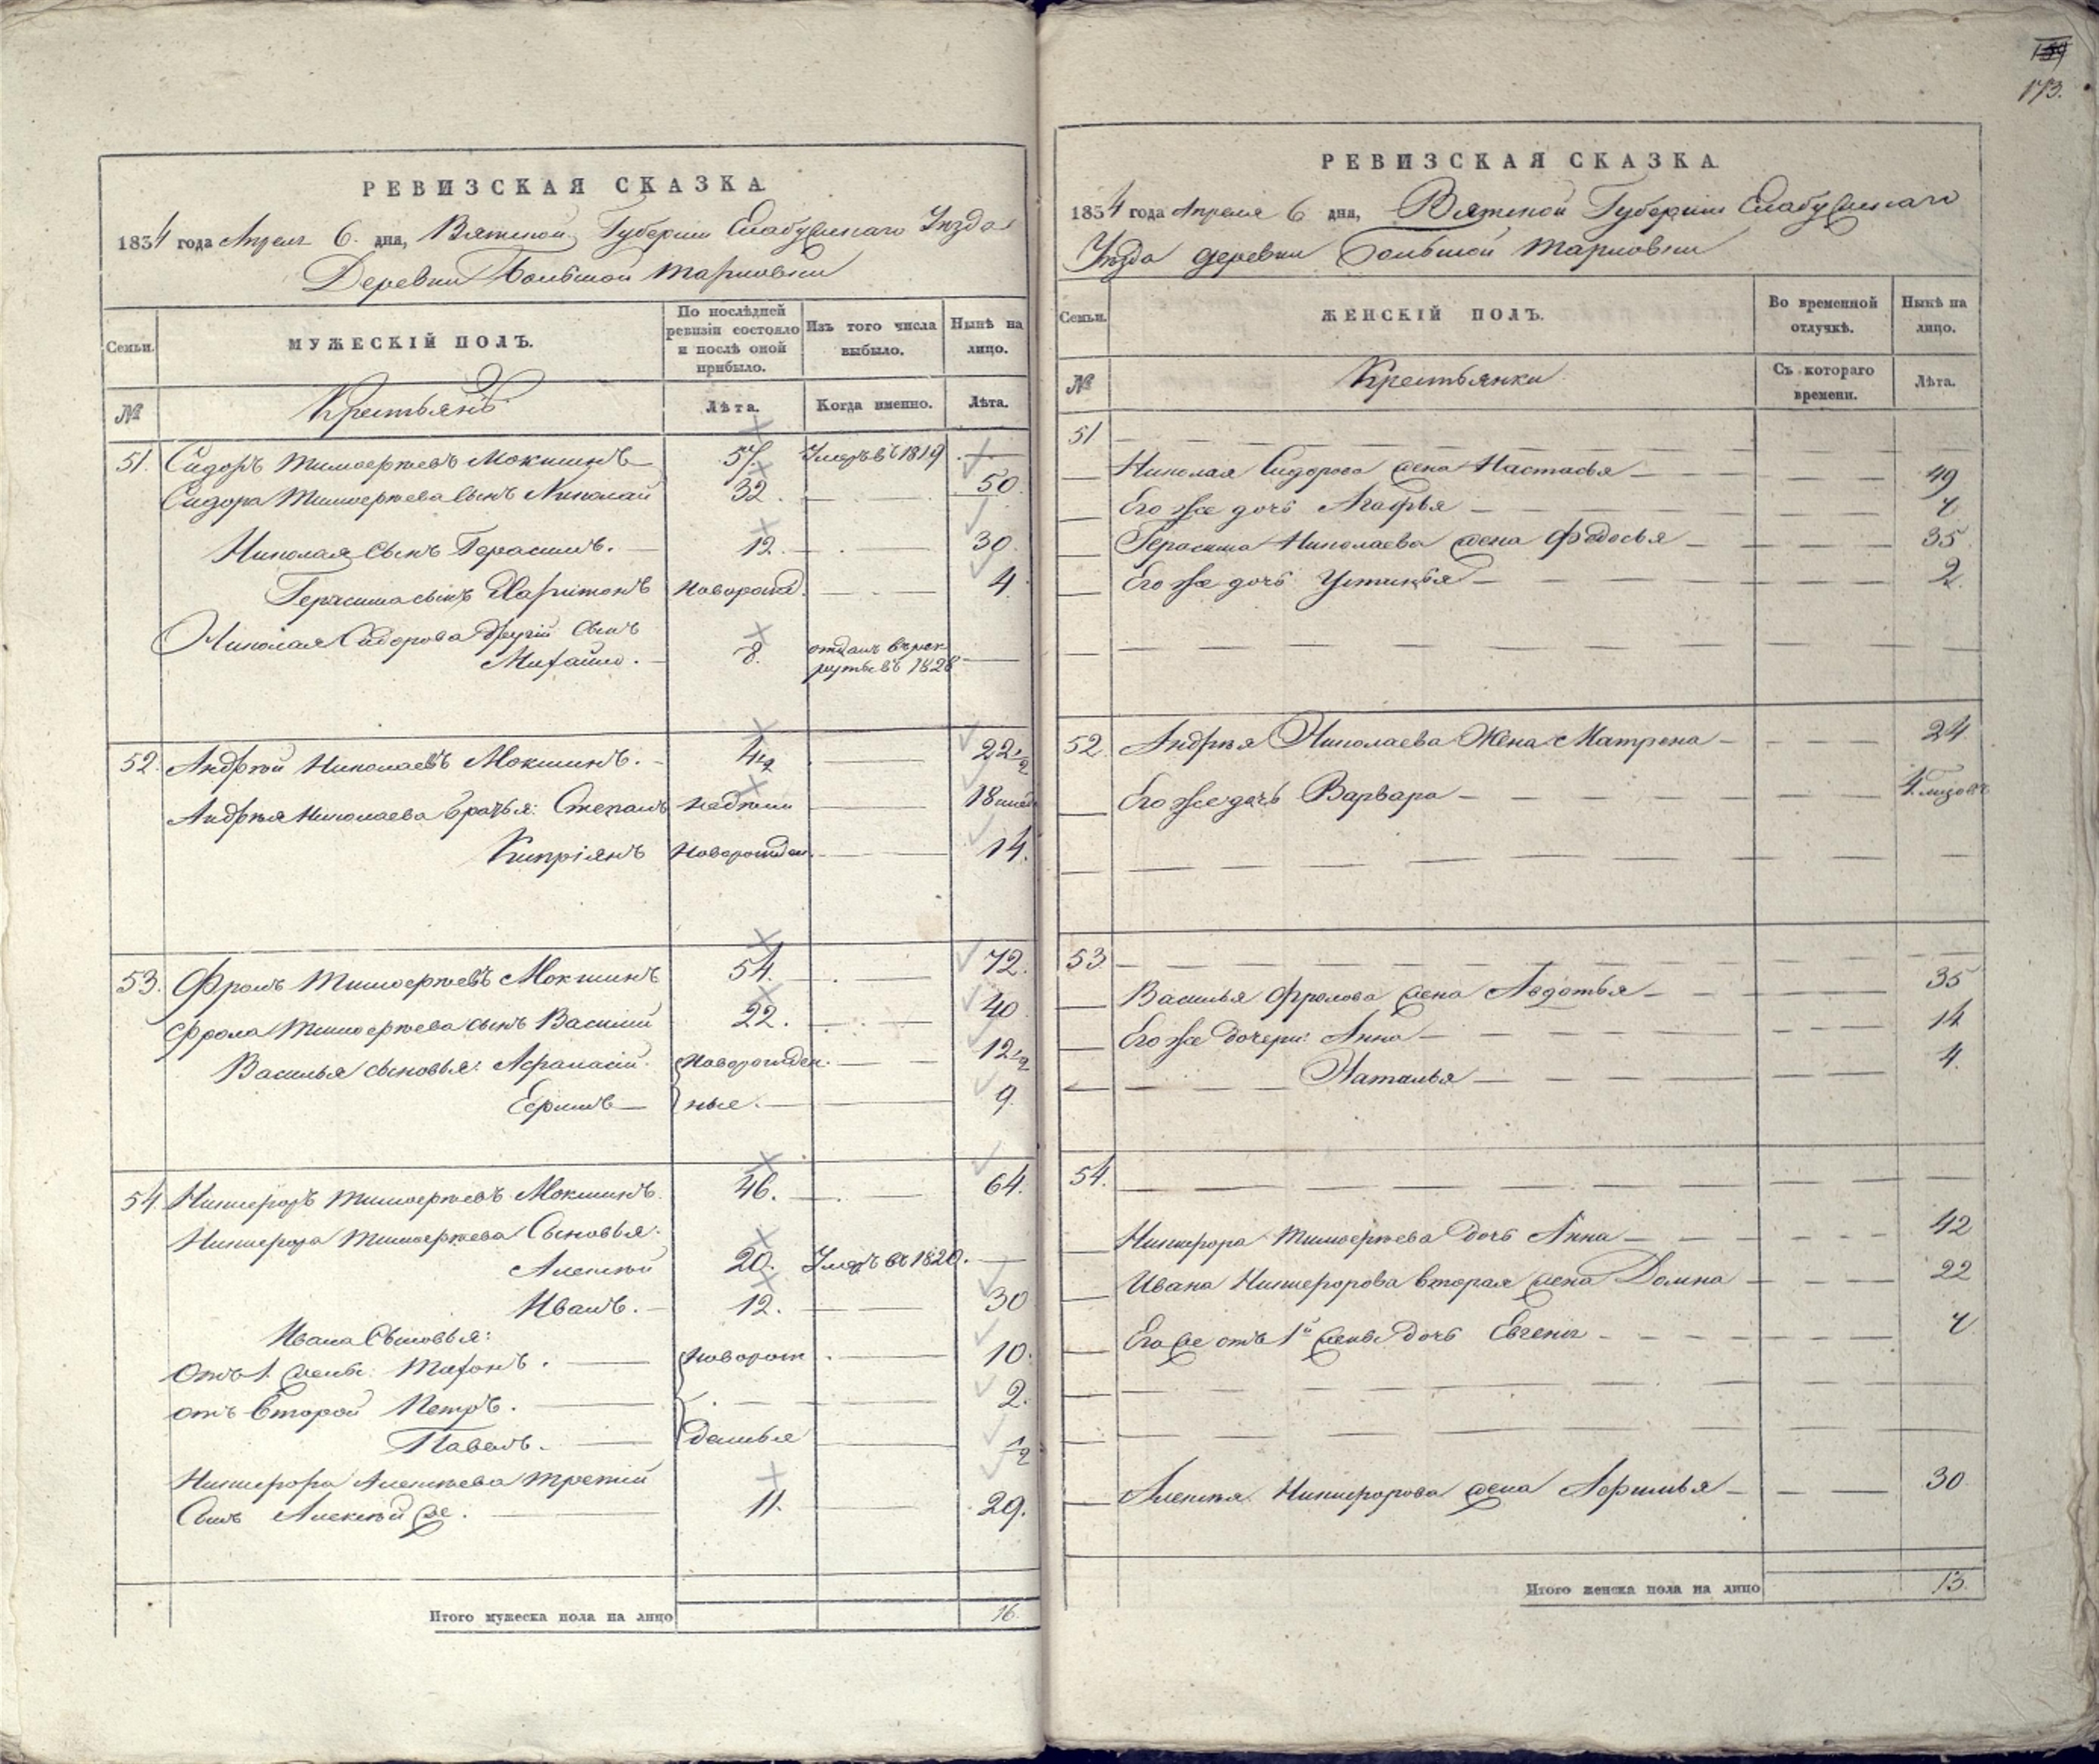 159
173.
РЕВИЗСКАЯ СКАЗКА.
1834 года Апреля 6. дня, Вятской Губернии Елабужскаго Уѣзда
Деревни Большой Тарловки
Семьи.
МУЖЕСКІЙ ПОЛЪ.
По послѣдней ревизіи состояло и послѣ оной прибыло.
Изъ того числа выбыло.
Нынѣ на лицо.
№
Крестьянъ
Лѣта.
Когда именно.
Лѣта.
51. Сидоръ Тимоѳеевъ Мокшинъ 57. Умеръ въ 1819
Сидора Тимоѳеева сынъ Николай 32. 50.
Николая сынъ Герасимъ. 12. 30.
Герасима сынъ Харитонъ Новорожд. 4.
Николая Сидорова другій сынъ
Михайло. 8. отданъ въ рек
руты въ 1828
52. Андрей Николаевъ Мокшинъ. 4½ 22½
Андрея Николаева братья: Степанъ недѣли 18
Кипріянъ Новорожден. 14.
53. Фролъ Тимоѳеевъ Мокшинъ 54. 72.
Фрола Тимоѳеева сынъ Василій 22. 40
Василья сыновья: Афанасій. Новорожден. 12½
Ефимъ ные. 9.
54. Никифоръ Тимоѳеевъ Мокшинъ. 46. 64.
Никифора Тимоѳеева Сыновья:
Алексѣй 20. Умеръ въ 1820.
Иванъ. 12. 30
Ивана Сыновья:
Отъ 1. жены: Тихонъ. Новорож 10.
отъ второй Петръ. 2.
Павелъ. денныя ½
Никифора Алексѣева третій
Сынъ Алексѣй же. 11. 29.
Итого мужеска пола на лицо 16.
РЕВИЗСКАЯ СКАЗКА.
1834 года Апреля 6 дня, Вятской Губернии Елабужскаго
Уѣзда деревни Большой Тарловки
Семьи.
ЖЕНСКІЙ ПОЛЪ.
Во временной отлучкѣ.
Нынѣ на лицо.
№
Крестьянки
Съ котораго времени.
Лѣта.
51
Николая Сидорова жена Настасья 49
Его же дочь Агафья
Герасима Николаева жена Федосья 35
Его же дочь Устинья 2.
52. Андрея Николаева Жена Матрена 24
Его же дочь Варвара
53
Василья Фролова жена Авдотья 35
Его же дочери: Анна 14
Наталья 4.
54.
Никифора Тимоѳеева дочь Анна 42
Ивана Никифорова вторая жена Домна 22
Его же отъ 1й жены дочь
Алексѣя Никифорова жена Афимья 30
Итого женска пола на лицо 13.